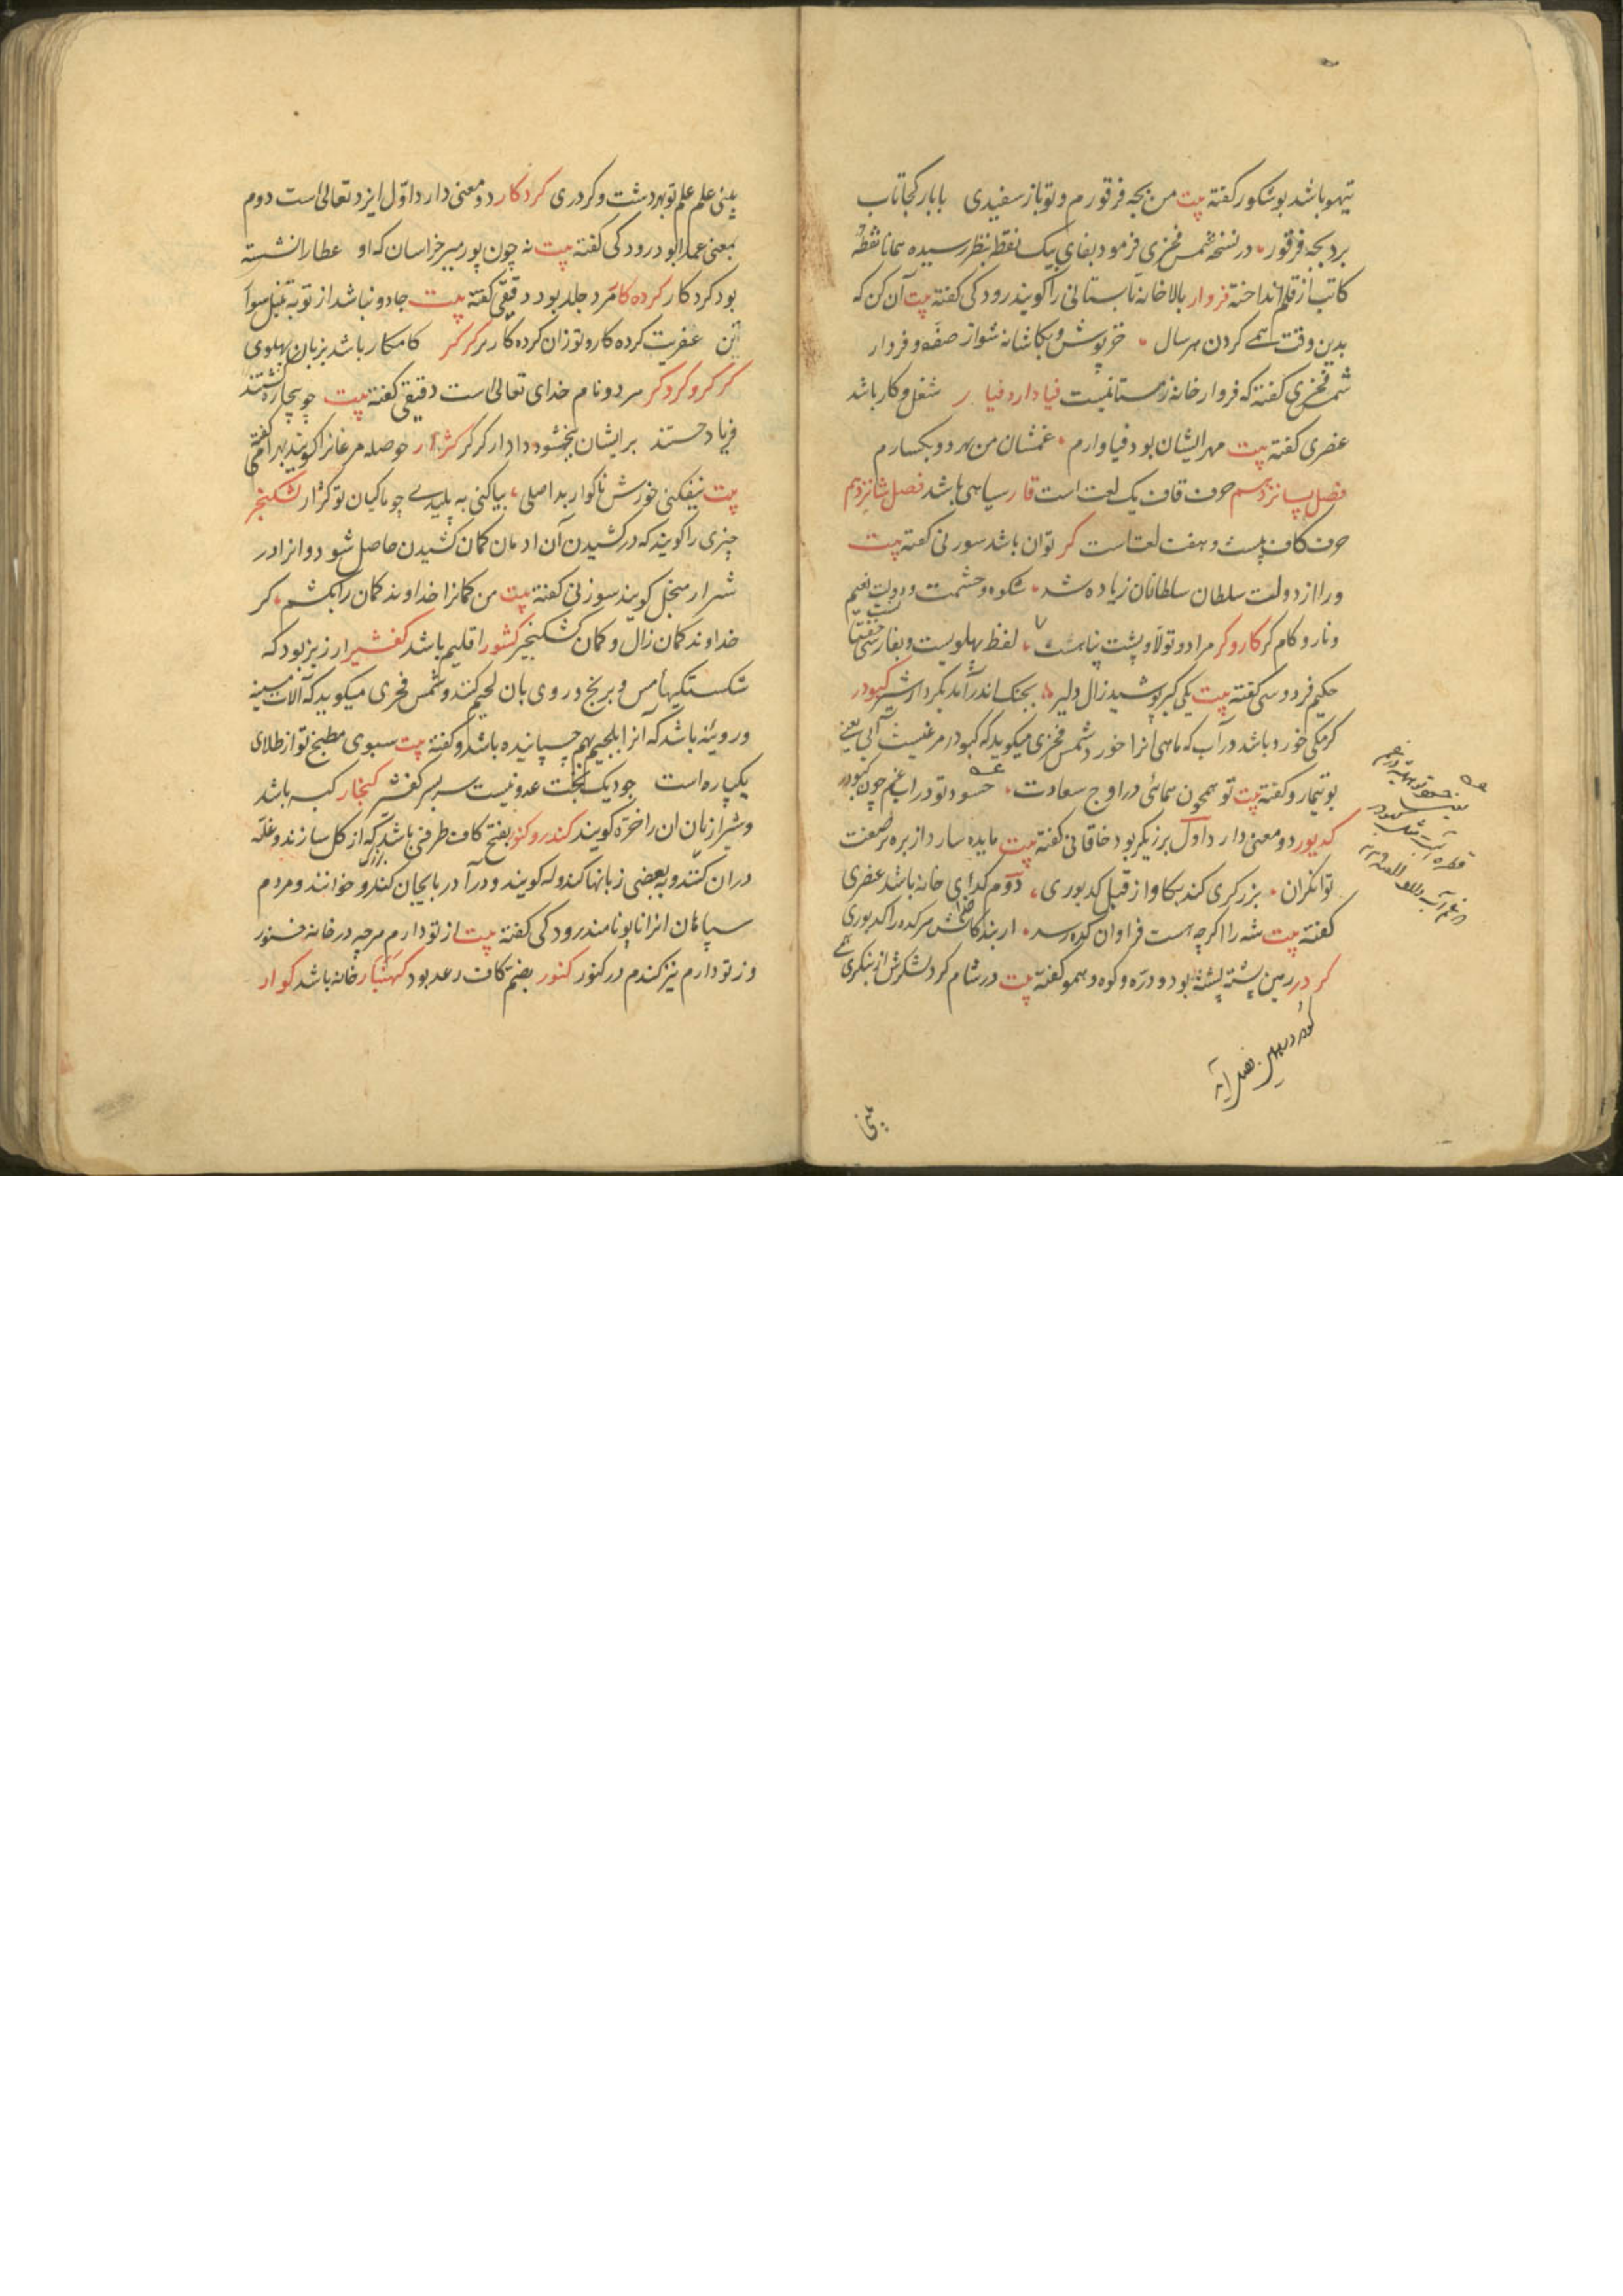 تیهو باشد بوشکور گفته بیت من بچه فرفورم و تو باز سفیدی با باز کجا تاب
برد بچه فرفور در نسخه شمس فخری فرمود بفای بیک نقطه بنظر رسیده همانا نقطه
کاتب از قلم انداخته فروار بالا خانه تابستانی را کویند رودکی گفته بیت آن کن که
بدین وقت همی کردن هر سال خز پوش و بکاشانه شو از صفه و فروار
شمس فخری گفته که فروار خانه زمستانیست فیادار و فیار شغل و کار باشد
عنصری گفته بیت مهر ایشان بود فیاوارم غمشان من بهر دو بکسارم
فصل پانزدهم حرف قاف یک لغت است قار سیاهی باشد فصل شانزدهم
حرف کاف بیست و هفت لغت است کر توان باشد سوزنی گفته بیت
ورا از دولت سلطان سلطانان زیاده شد شکوه و حشمت و دولت نعیم
و ناز و کام کر کاروکر مراد و تولا و پشت پناهست لفظ پهلویست و بفارسی
حکیم فردوسی گفته بیت یکی کبر پوشید زال دلیر بجنک اندر آمد بکردار شیر کبودر
کرمکی خورد باشد در آب که ماهی انرا خورد شمس فخری میکوید که کبودر مرغیست آبی یعنی
بوتیمار و گفته بیت تو همچون همائی در اوج سعادت حسود تو در آب غم چون کبودر
کدیور دو معنی دارد اول برزیکر بود خاقانی گفته بیت مایده سازد از بره بر صفت
توانکران بزرگری کند بکاو از قبل کدیوری دوم کدای خانه باشد عنصری
گفته بیت شه را اکرچه هست فراوان کوه رسد هر کده را کدیوری
کردر زمین پشته پشته بود و دره و کوه و همو گفته بیت در شام کرد لشکرش از بنکری همی
یبنی
یبنی علم علم تو بهر دشت و کردری کردکار دو معنی دارد اول ایزد تعالی است دوم
بمعنی عمدا بود رودکی گفته بیت نه چون پور میر خراسان که او عطا را نشسته
بود کردکار کرده کار مرد جلد بود دقیقی گفته بیت جادو نباشد از تو به تنبل سوار
عفریت کرده کار و تو زان کرده کارتر کرکر کامکار باشد بزبان پهلوی
کرکر و کروکر هر دو نام خدای تعالی است دقیقی گفته بیت چو بیچاره کشتند
فریاد جستند بر ایشان ببخشود دادار کرکر کژار حوصله مرغانرا کویند بهرامی
بیت بیفکنی خورش ناکوار بد اصلی بیاکنی به پلیدی چو ماکیان تو کژار کشکنجیر
چیزی را کویند که در کشیدن آن ادمان کمان کشیدن حاصل شود و انرا در
شیراز منجل کویند سوزنی گفته بیت من کمانرا خداوند کمان را بکشم کر
خداوند کمان زال و کمان کشکنجیر کشور اقلیم باشد کفشیر ارزیز بود که
شکستکیهاء مس و برنج و روی بان لحیم کنند و شمس فخری میکوید که آلات مسینه
و رویینه باشد که آنرا بلحیم بهم چسپانیده باشد و گفته بیت سبوی مطبخ تو از طلای
یکپاره است چو دیک بخت عدو نیست سر بسر کفشیر کنجار کسبه باشد
و شیرازیان ان را خره کویند کندرو کنو بفتح کاف ظرفی باشد بزرک که از کل سازند و غله
دران کنند و به بعضی زبانها کندوله کویند و در آذربایجان کندو خوانند و مردم
سپاهان انرا تاپو نامند رودکی گفته بیت از تو دارم هر چه در خانه خنور
وز تو دارم نیز کندم در کنور کنور بضم کاف رعد بود کهنبار خانه باشد کوار